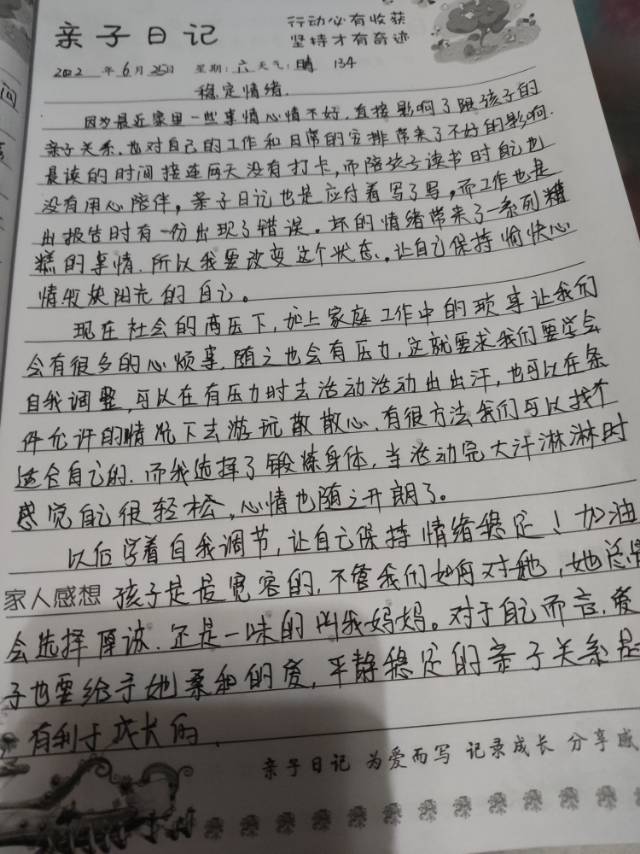 亲子日记
行动必有收获
坚持才有奇迹
2022年6月25日 星期:六 天气:晴 134
稳定情绪.
因为最近家里一些事情心情不好,直接影响了跟孩子的
亲子关系,也对自己的工作和日常的安排带来了不好的影响.
晨读的时间接连两天没有打卡,而陪孩子读书时自己也
没有用心陪伴,亲子日记也是应付着写了写,而工作也是
出报告时有一份出现了错误。坏的情绪带来了一系列糟
糕的事情.所以我要改变这个状态,让自己保持愉快心
情做快阳光的自己。
现在社会的高压下,加上家庭工作中的琐事让我们
会有很多的心烦事,随之也会有压力,这就要求我们要学会
自我调整,可以在有压力时去活动活动出出汗,也可以在条
件允许的情况下去游玩散散心,有很方法我们可以找个
适合自己的.而我选择了锻炼身体,当活动完大汗淋淋时
感觉自己很轻松,心情也随之开朗了。
以后学着自我调节,让自己保持情绪稳定!加油
家人感想 孩子是最宽容的,不管我们如何对她,她总是
会选择原谅.还是一味的叫我妈妈。对于自己而言,爱
子也要给予她柔和的爱,平静稳定的亲子关系是
有利于成长的.
亲子日记 为爱而写 记录成长 分享感